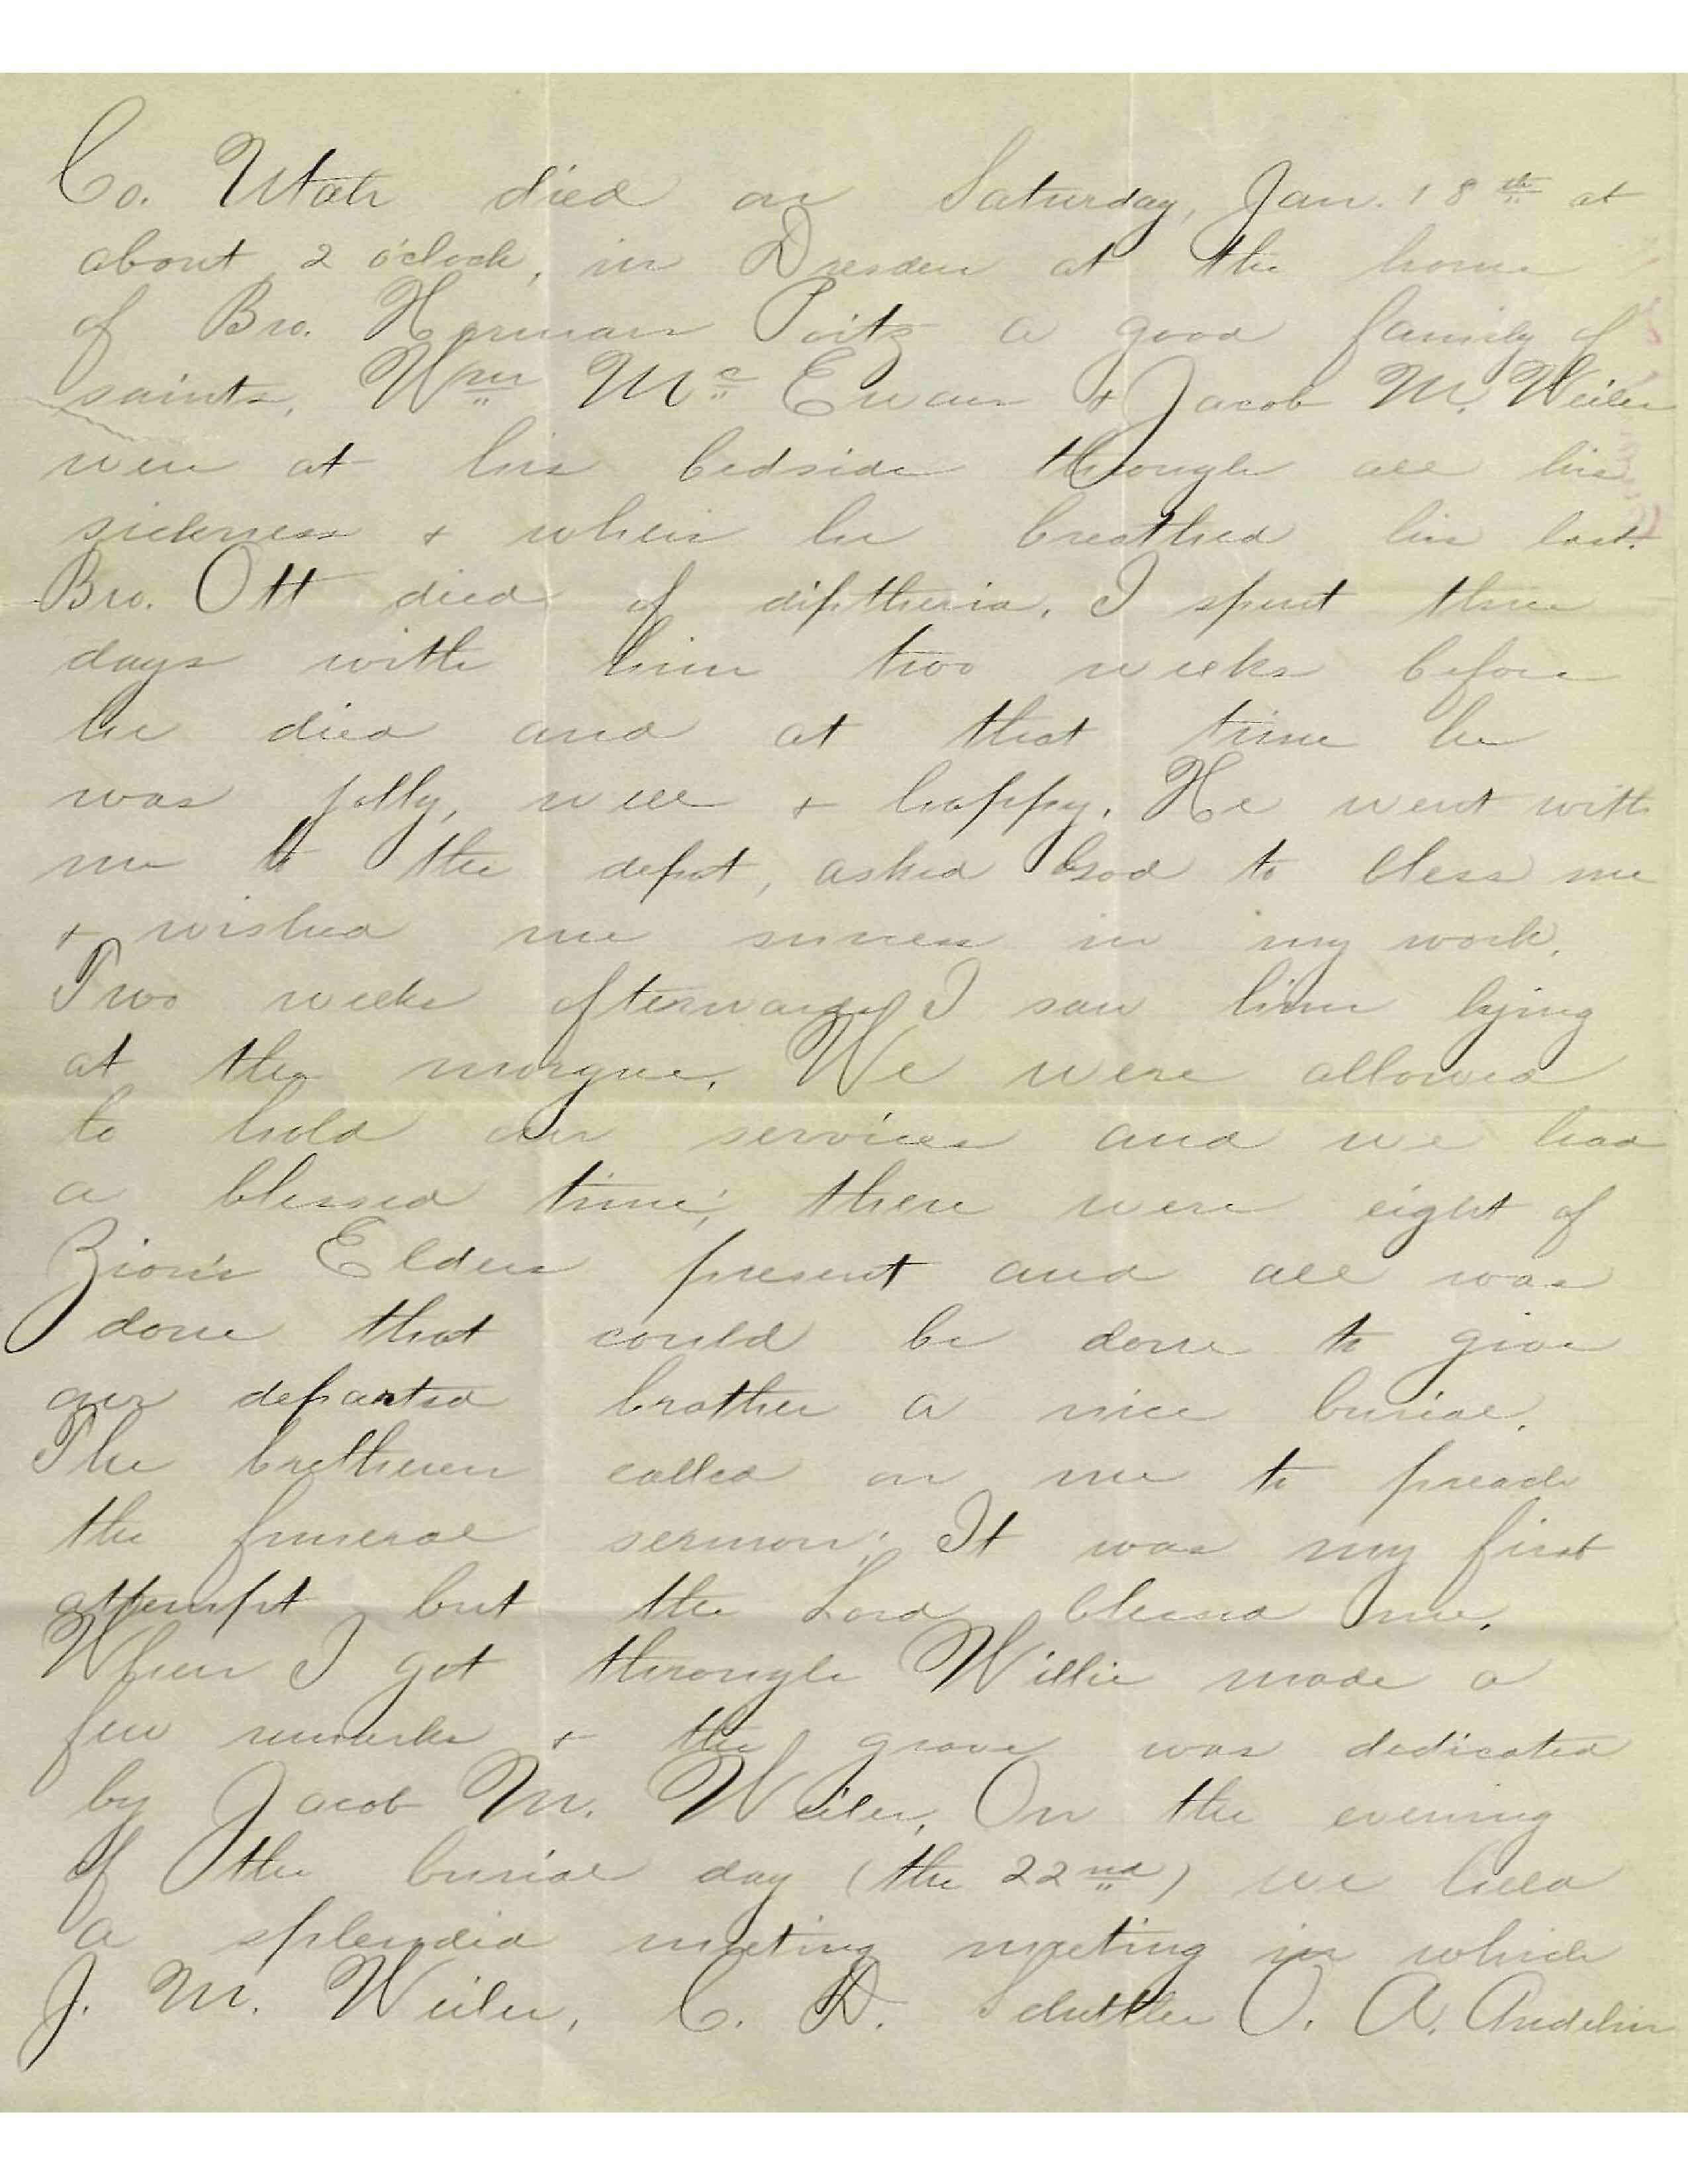 Co. Utah died on Saturday, Jan. 18th at
about 2 o'clock, in Dresden at the home
of Bro. Herman Poitz a good family of
saints. Wm McEwan + Jacob M. Weiler
were at his bedside through all his
sickness + when he breathed his last.
Bro. Ott died of diptheria. I spent three
days with him two weeks before
he died and at that time he
was jolly, well + happy. He went with
me to the depot, asked God to bless me
+ wished me success in my work.
Two weeks afterwards I saw him lying
at the morgue. We were allowed
to hold our services and we had
a blessed time; there were eight of
Zion's Elders present and all was
done that could be done to give
our departed brother a nice burial.
The bretheren called on me to preach
the funeral sermon. It was my first
attempt but the Lord blessed me.
When I got through Willie made a
few remarks + the grave was dedicated
by Jacob M. Weiler. On the evening
of the burial day (the 22nd) we held
a splendid meeting meeting in which
J. M. Weiler, C. D. Schettler O. A. Andelin